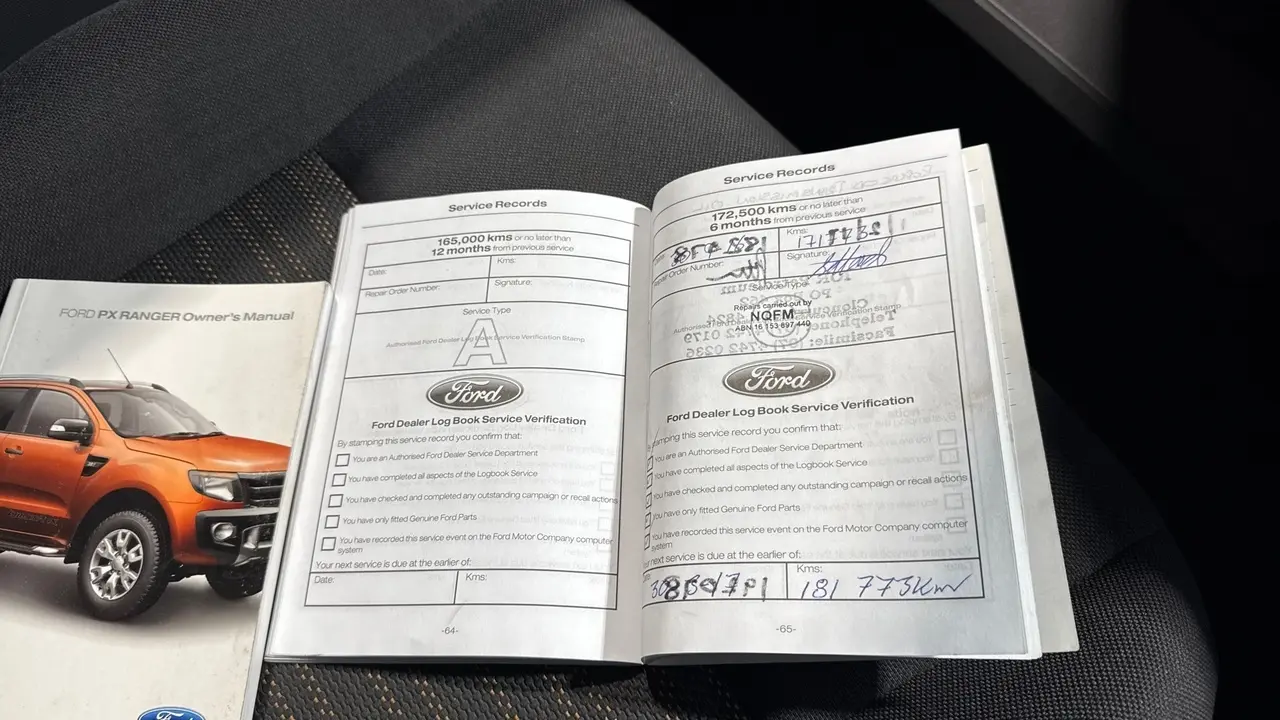 FORD PX RANGER Owner's Manual
Ford
Service Records
165,000 kms or no later than
12 months from previous service
Date:
Kms:
Repair Order Number:
Signature:
Service Type
A
Authorised Ford Dealer Log Book Service Verification Stamp
Ford
Ford Dealer Log Book Service Verification
By stamping this service record you confirm that:
You are an Authorised Ford Dealer Service Department
You have completed all aspects of the Logbook Service
You have checked and completed any outstanding campaign or recall actions
You have only fitted Genuine Ford Parts
You have recorded this service event on the Ford Motor Company computer
system
Your next service is due at the earlier of:
Date:
Kms:
-64-
Service Records
172,500 kms or no later than
6 months from previous service
Kms:
Repair Order Number:
Signature:
Service Type
Repairs carried out by
NQFM
Authorised Service Verification Stamp
ABN 16 153 897 440
Ford
Ford Dealer Log Book Service Verification
By stamping this service record you confirm that:
You are an Authorised Ford Dealer Service Department
You have completed all aspects of the Logbook Service
You have checked and completed any outstanding campaign or recall actions
You have only fitted Genuine Ford Parts
You have recorded this service event on the Ford Motor Company computer
system
Your next service is due at the earlier of:
Kms:
181 773Km
-65-